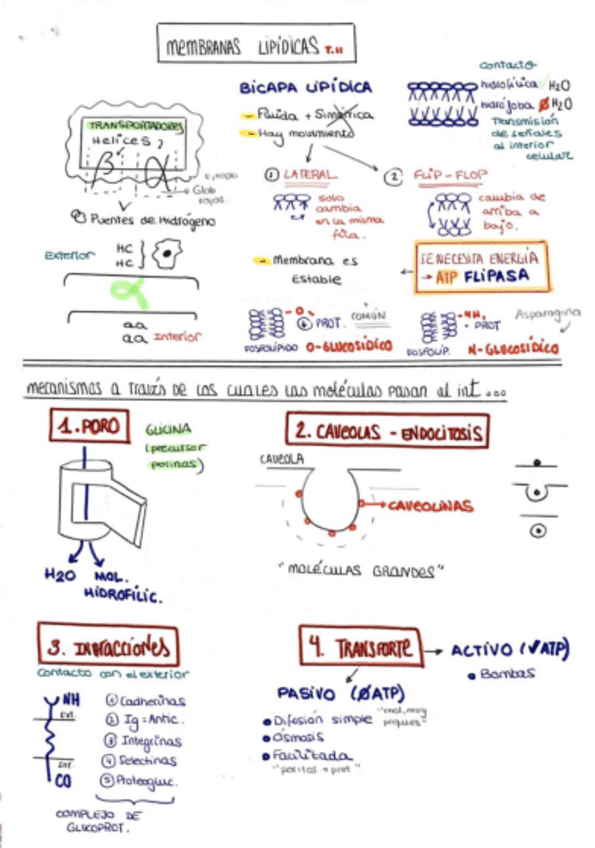 MEMBRANAS LIPÍDICAS T.11
BICAPA LIPÍDICA
- Fluida + Simétrica
- Hay movimiento
contacto
hidrofílica H2O
hidrófoba Ø H2O
Transmisión
de señales
al interior
celular
TRANSPORTADORES
Helices
β α
Ejemplo
Glob
rojos.
Puentes de Hidrógeno
① LATERAL
solo
cambia
en la misma
fila.
② FLIP-FLOP
cambia de
arriba a
bajo.
Exterior
HC
HC
aa
aa Interior
- Membrana es
Estable
SE NECESITA ENERGÍA
→ ATP FLIPASA
- O
PROT.
+ COMÚN
FOSFOLÍPIDO O-GLUCOSÍDICO
- NH
+ PROT
Asparagina
FOSFOLIP. N-GLUCOSÍDICO
mecanismos a través de los cuales las moléculas pasan al int...
1. PORO
GLICINA
(precursor
porinas)
H2O MOL.
HIDROFÍLIC.
2. CAVEOLAS - ENDOCITOSIS
CAVEOLA
CAVEOLINAS
"MOLÉCULAS GRANDES"
3. INTERACCIONES
Contacto con el exterior
NH
Ext.
Int.
CO
① Cadherinas
② Ig = Antic.
③ Integrinas
④ Selectinas
⑤ Proteogluc.
COMPLEJO DE
GLUCOPROT.
4. TRANSPORTE → ACTIVO (√ATP)
• Bombas
PASIVO (ØATP)
• Difusión simple "mol. muy
peques"
• Ósmosis
• Facilitada
"poritos + prot"